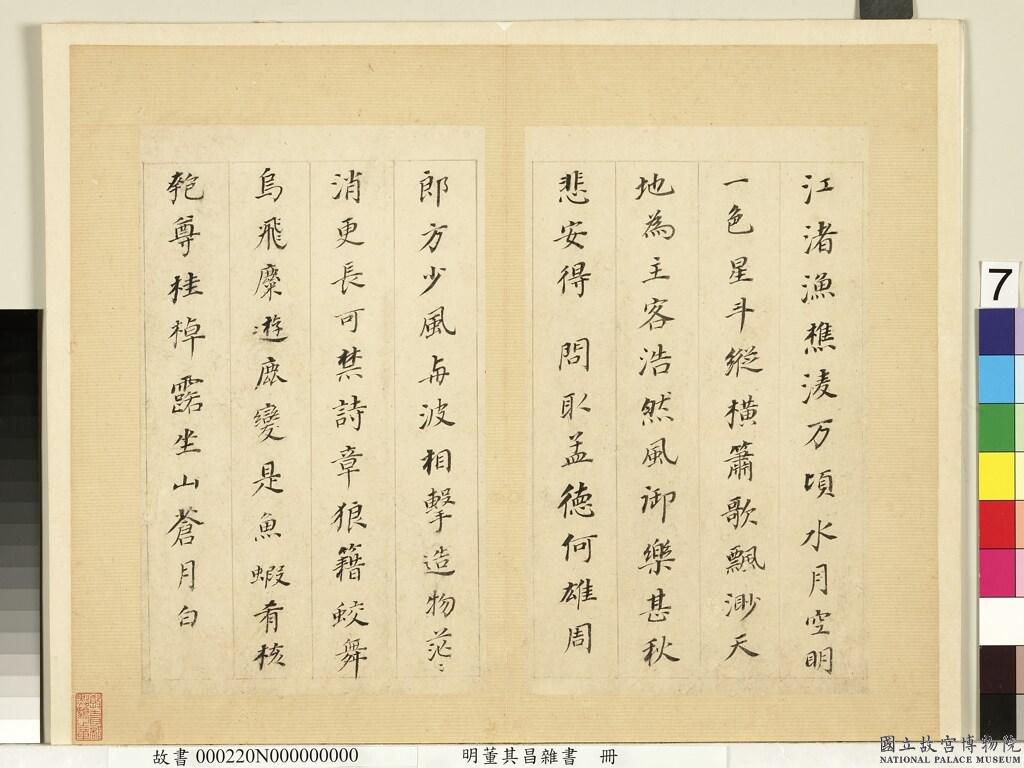 江渚漁樵淩万頃水月空明
一色星斗縱橫簫歌飄渺天
地為主客浩然風御樂甚秋
悲安得 問取孟德何雄周
郎方少風与波相擊造物茫〻
消更長可禁詩章狼籍蛟舞
烏飛麋遊鹿變是魚蝦肴核
匏尊桂棹露坐山蒼月白
7
故書 000220N000000000 明董其昌雜書 冊
國立故宮博物院
NATIONAL PALACE MUSEUM